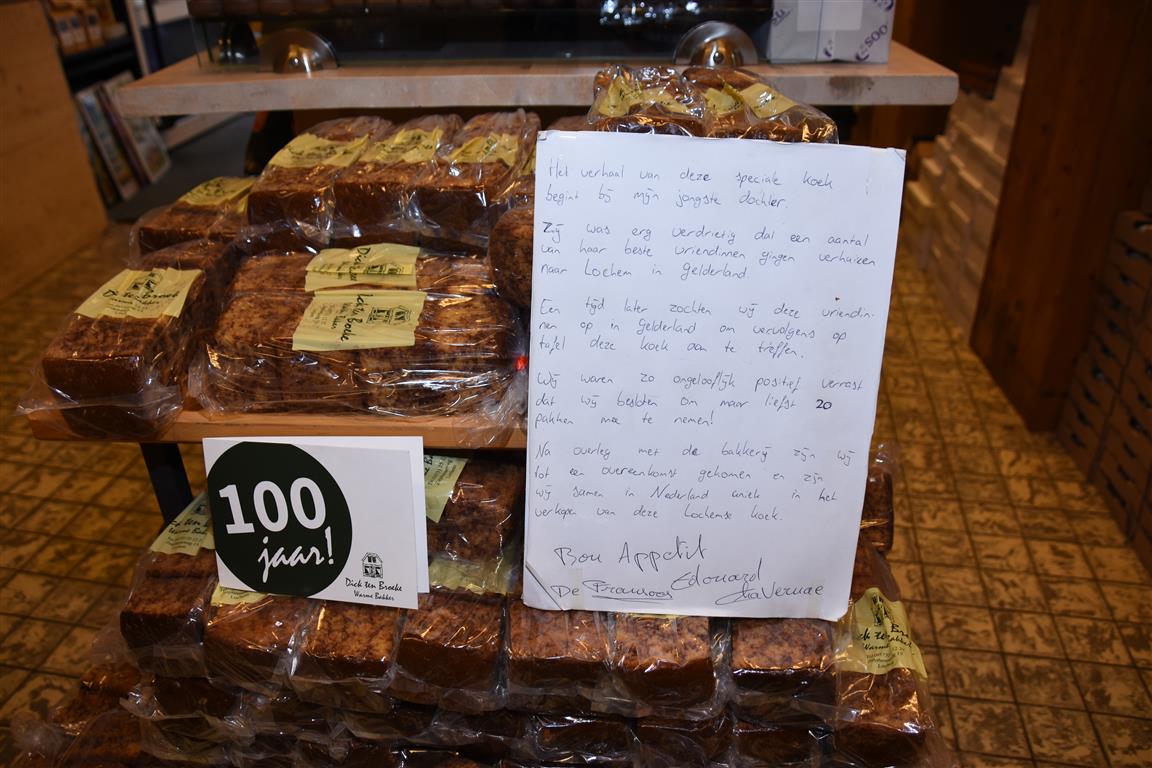 Het verhaal van deze speciale koek
begint bij mijn jongste dochter.
Zij was erg verdrietig dat een aantal
van haar beste vriendinnen gingen verhuizen
naar Lochem in Gelderland.
Een tijd later zochten wij deze vriendin-
nen op in Gelderland om vervolgens op
tafel deze koek aan te treffen.
Wij waren zo ongelooflijk positief verrast
dat wij besloten om maar liefst 20
pakken mee te nemen!
Na overleg met de bakkerij zijn wij
tot een overeenkomst gekomen en zijn
wij samen in Nederland uniek in het
verkopen van deze Lochemse koek.
Bon Appetit
De Fransoos Edouard
100
jaar!
Dick ten Broeke
Warme Bakker